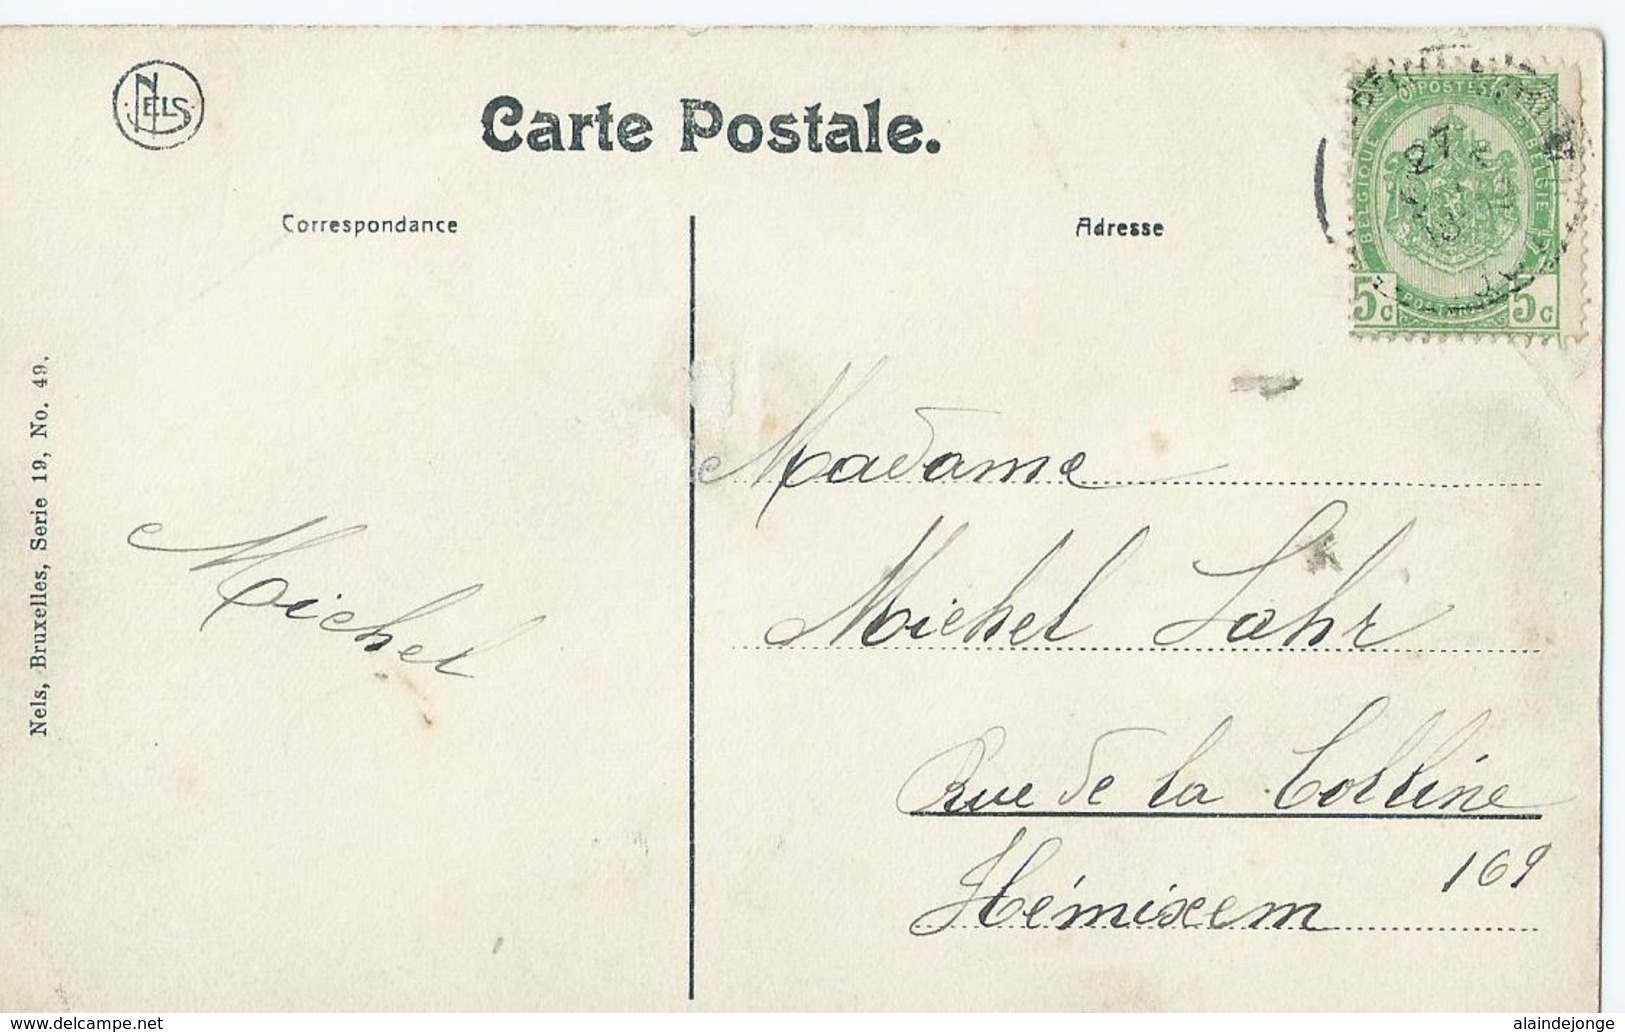 NELS
Carte Postale.
Correspondance
Adresse
POSTES
BELGIQUE
BELGIE
5c
5c
27
Nels, Bruxelles, Serie 19, No. 49.
Michel
Madame
Michel Lahr
Rue de la Colline
169
Hémixem
www.delcampe.net
alaindejonge